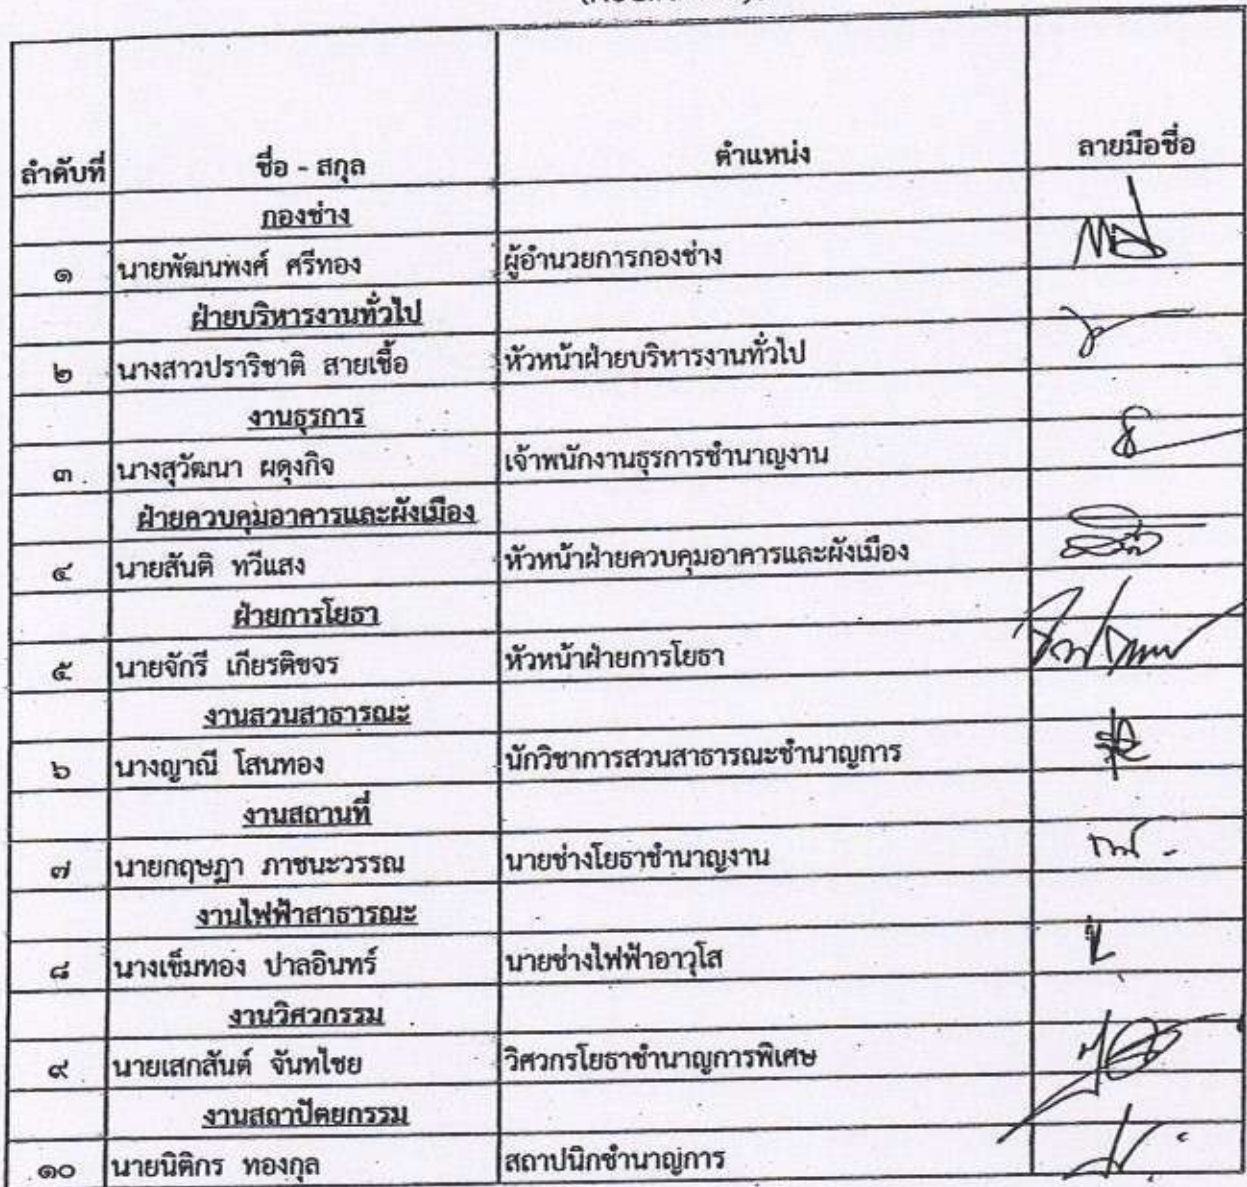 ลำดับที่ ชื่อ - สกุล ตำแหน่ง ลายมือชื่อ
กองช่าง
๑ นายพัฒนพงศ์ ศรีทอง ผู้อำนวยการกองช่าง
ฝ่ายบริหารงานทั่วไป
๒ นางสาวปราริชาติ สายเชื้อ หัวหน้าฝ่ายบริหารงานทั่วไป
งานธุรการ
๓ นางสุวัฒนา ผดุงกิจ เจ้าพนักงานธุรการชำนาญงาน
ฝ่ายควบคุมอาคารและผังเมือง
๔ นายสันติ ทวีแสง หัวหน้าฝ่ายควบคุมอาคารและผังเมือง
ฝ่ายการโยธา
๕ นายจักรี เกียรติขจร หัวหน้าฝ่ายการโยธา
งานสวนสาธารณะ
๖ นางญาณี โสนทอง นักวิชาการสวนสาธารณะชำนาญการ
งานสถานที่
๗ นายกฤษฎา ภาชนะวรรณ นายช่างโยธาชำนาญงาน
งานไฟฟ้าสาธารณะ
๘ นางเข็มทอง ปาลอินทร์ นายช่างไฟฟ้าอาวุโส
งานวิศวกรรม
๙ นายเสกสันต์ จันทไชย วิศวกรโยธาชำนาญการพิเศษ
งานสถาปัตยกรรม
๑๐ นายนิติกร ทองกุล สถาปนิกชำนาญการ